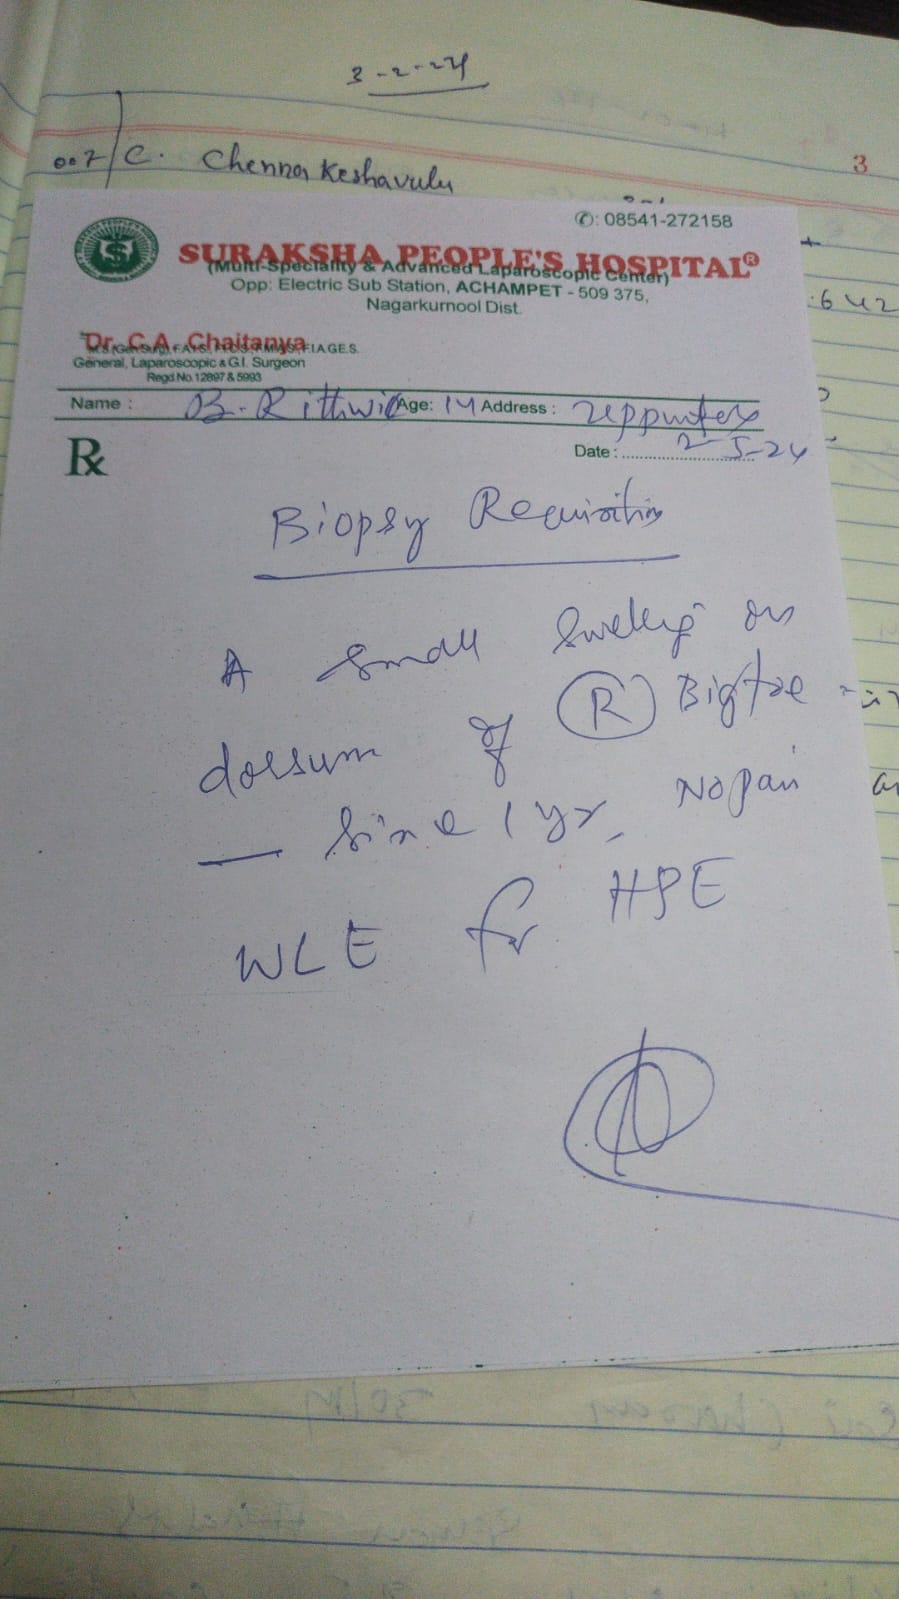 3-2-24
007 C. Chenna Keshavulu
3
✆: 08541-272158
SURAKSHA PEOPLE'S HOSPITAL®
(Multi-Speciality & Advanced Laparoscopic Center)
Opp: Electric Sub Station, ACHAMPET - 509 375,
Nagarkurnool Dist.
Dr. C.A. Chaitanya
F.I.A.G.E.S.
General, Laparoscopic & G.I. Surgeon
Regd No. 12897 & 5993
Name : B. Rithwik Age: 14 Address :
Rx
Date : 2-5-24
Biopsy Requisition
A small swelling on
dorsum of (R) Big toe
— Since 1 yr, No pain
WLE for HPE